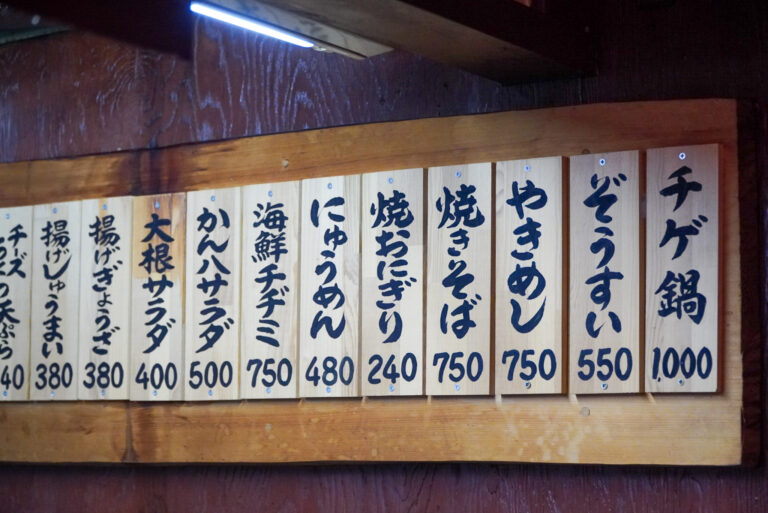 チゲ鍋
1,000
ぞうすい
550
やきめし
750
焼きそば
750
焼おにぎり
240
にゅうめん
480
海鮮チヂミ
750
かんハサラダ
500
大根サラダ
400
揚げぎょうざ
380
揚げしゅうまい
380
チーズ
天ぷら
40